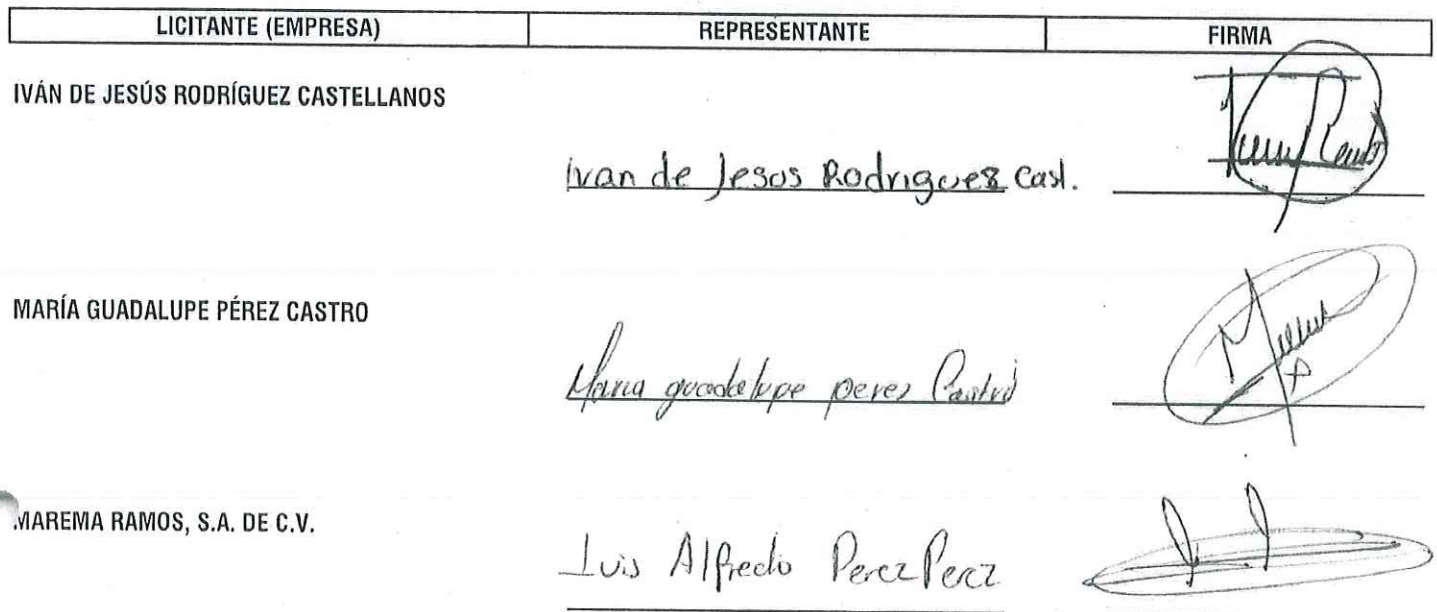 LICITANTE (EMPRESA) REPRESENTANTE FIRMA
IVÁN DE JESÚS RODRÍGUEZ CASTELLANOS
Ivan de Jesus Rodriguez Cast.
MARÍA GUADALUPE PÉREZ CASTRO
Maria guadalupe perez Castro
MAREMA RAMOS, S.A. DE C.V.
Luis Alfredo Perez Perez